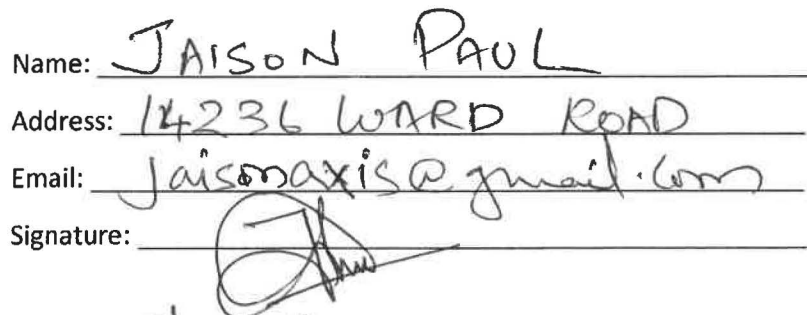 Name: JAISON PAUL
Address: 14236 WARD ROAD
Email: jaisonaxis@gmail.com
Signature: